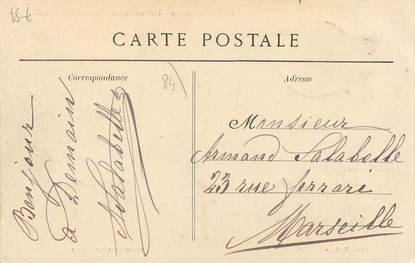 15-€
CARTE POSTALE
Correspondance
Adresse
84)
Bonjour
à Demain
ASalabelle
Monsieur
Armand Salabelle
23 rue ferrari
Marseille